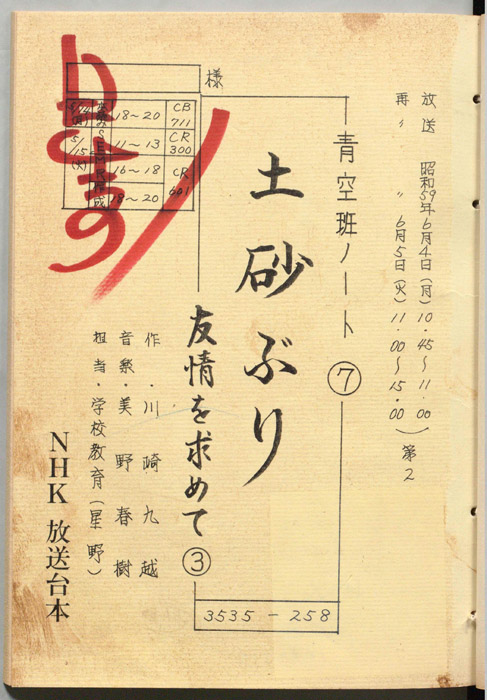 放送 昭和59年6月4日(月)10.45〜11.00
再〃 〃 6月5日(火)11.00〜15.00)第2
青空班ノート⑦
土砂ぶり
友情を求めて③
3535-258
様
CB711
18〜20
5/14(月)
CR300
11〜13
5/15(火)
CR601
16〜18
18〜20
作・川崎九越
音楽・美野春樹
担当・学校教育(星野)
NHK 放送台本